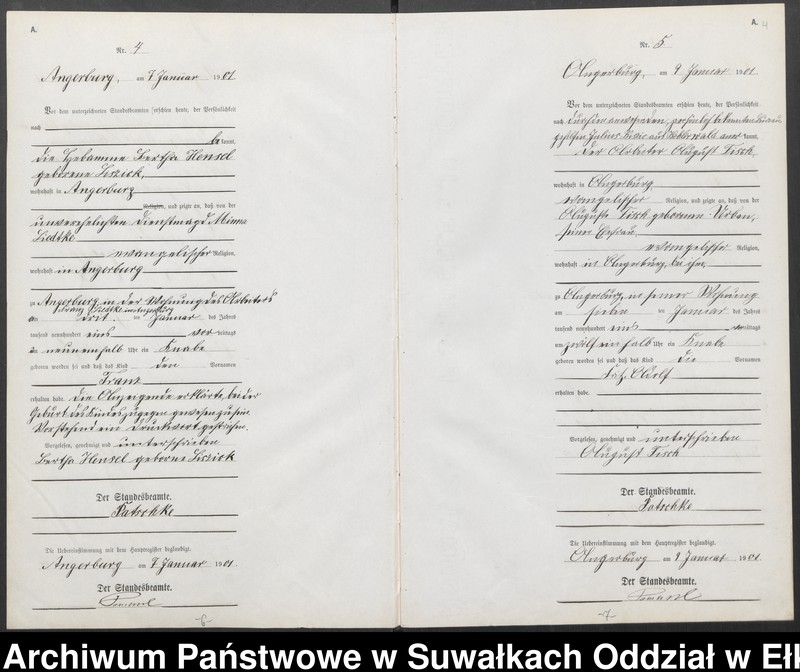 A.
Nr. 4
Angerburg, am 7 Januar 1901.
Vor dem unterzeichneten Standesbeamten erschien heute, der Persönlichkeit
nach
be kannt,
die Hebamme Bertha Hensel
geborene Liszick,
wohnhaft in Angerburg
Religion, und zeigte an, daß von der
unverehelichten Dienstmagd Minna
Liedtke
evangelischer Religion,
wohnhaft in Angerburg
zu Angerburg in der Wohnung des Arbeiters
Franz Liedtke in Angerburg
am drit. ten Januar des Jahres
tausend neunhundert eins vor mittags
um neuneinhalb Uhr ein Knabe
geboren worden sei und daß das Kind den Vornamen
Franz
erhalten habe. Die Anzeigende erklärte, bei der
Geburt des Kindes zugegen gewesen zu sein.
Vorstehend ein Druckwort gestrichen.
Vorgelesen, genehmigt und unterschrieben
Bertha Hensel geborne Liszick
Der Standesbeamte.
Patschke
Die Uebereinstimmung mit dem Hauptregister beglaubigt.
Angerburg am 7 Januar 1901.
Der Standesbeamte.
-6-
A. 4
Nr. 5
Angerburg, am 9 Januar 1901
Vor dem unterzeichneten Standesbeamten erschien heute, der Persönlichkeit
nach durch den anwesenden, persönlich bekannten
gehilfen Julius aus aner kannt,
der Arbeiter August Fisch,
wohnhaft in Angerburg
evangelischer Religion, und zeigte an, daß von der
Auguste Fisch geborenen Urban,
seiner Ehefrau
evangelischer Religion,
wohnhaft in Angerburg, bei ihm,
zu Angerburg, in seiner Wohnung
am sieben ten Januar des Jahres
tausend neunhundert eins vormittags
um zwölf ein halb Uhr ein Knabe
geboren worden sei und daß das Kind die Vornamen
Fritz Adolf
erhalten habe.
Vorgelesen, genehmigt und unterschrieben
August Fisch
Der Standesbeamte.
Patschke
Die Uebereinstimmung mit dem Hauptregister beglaubigt.
Angerburg am 9 Januar 1901.
Der Standesbeamte.
-7-
Archiwum Państwowe w Suwałkach Oddział w Eł